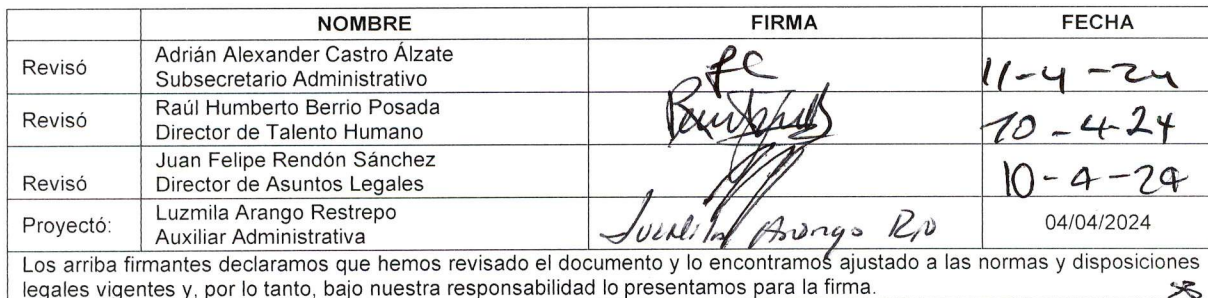 NOMBRE FIRMA FECHA
Revisó Adrián Alexander Castro Álzate
Subsecretario Administrativo 11-4-24
Revisó Raúl Humberto Berrio Posada
Director de Talento Humano 10-4-24
Revisó Juan Felipe Rendón Sánchez
Director de Asuntos Legales 10-4-24
Proyectó: Luzmila Arango Restrepo
Auxiliar Administrativa Luzmila Arango Rpo 04/04/2024
Los arriba firmantes declaramos que hemos revisado el documento y lo encontramos ajustado a las normas y disposiciones
legales vigentes y, por lo tanto, bajo nuestra responsabilidad lo presentamos para la firma.